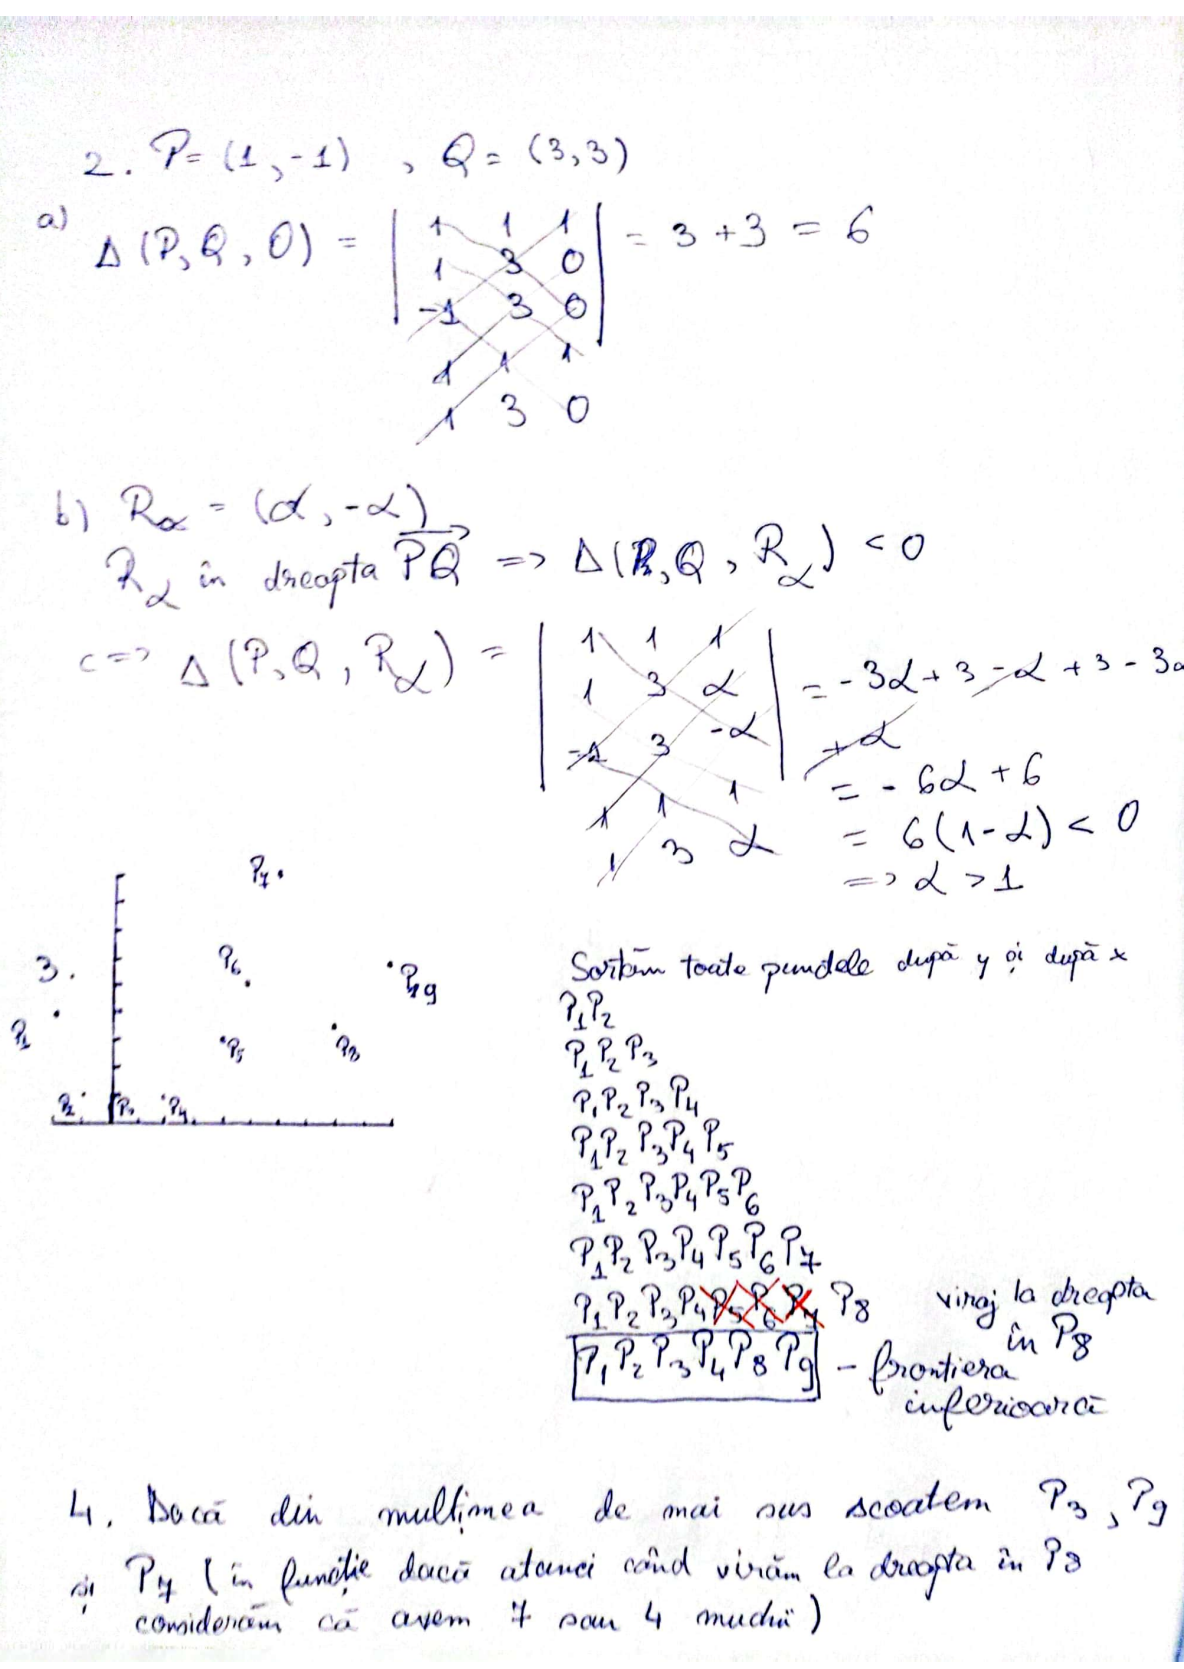 2. P= (1,-1) , Q= (3,3)
a) Δ (P,Q,O) = | 1 1 1 | = 3+3 = 6
1 3 0
-1 3 0
1 1 1
1 3 0
b) Rα = (α,-α)
Rα în dreapta PQ => Δ(P,Q,Rα) < 0
<=> Δ (P,Q,Rα) = | 1 1 1 |
1 3 α = -3α+3-α+3-3α
-1 3 -α +α
1 1 1 = -6α+6
1 3 α = 6(1-α) < 0
=> α > 1
3.
P7
P6
P9
P1
P5
P8
P2 P3 P4
Sortăm toate punctele după y și după x
P1P2
P1P2P3
P1P2P3P4
P1P2P3P4P5
P1P2P3P4P5P6
P1P2P3P4P5P6P7
P1P2P3P4P5P6P7 P8 viraj la dreapta în P8
P1P2P3P4P8P9 - frontiera inferioară
4. Dacă din mulțimea de mai sus scoatem P3, P9
și P7 (în funcție dacă atunci când virăm la dreapta în P8
considerăm că avem 7 sau 4 muchii)